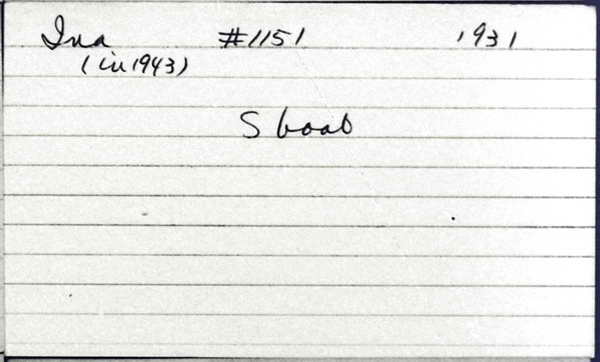 Ina #1151 1931
(in 1943)
S boat